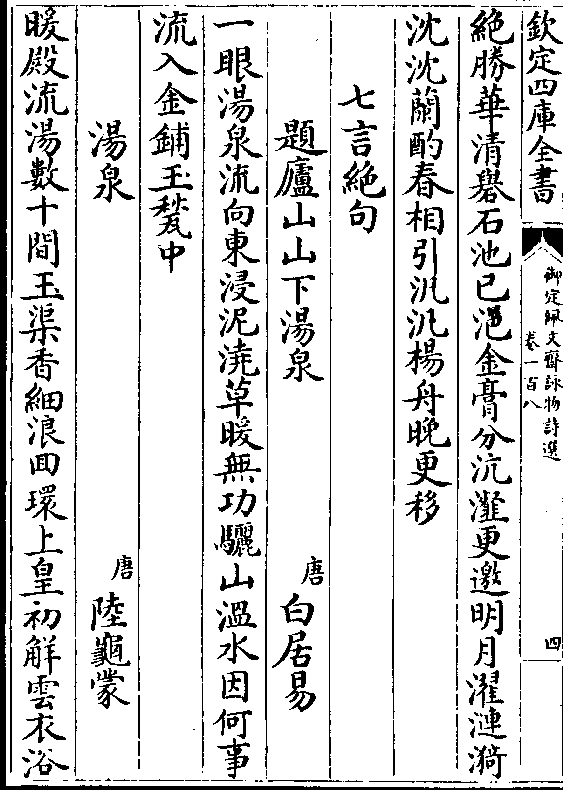 欽定四庫全書
御定佩文齋詠物詩選
卷一百八
四
絶勝華清礜石池已浥金膏分沆瀣更邀明月濯漣漪
沈沈蘭酌春相引汎汎楊舟晚更移
七言絶句
題廬山山下湯泉 唐 白居易
一眼湯泉流向東浸泥澆草暖無功驪山溫水因何事
流入金鋪玉甃中
湯泉 唐 陸龜蒙
暖殿流湯數十間玉渠香細浪回環上皇初解雲衣浴